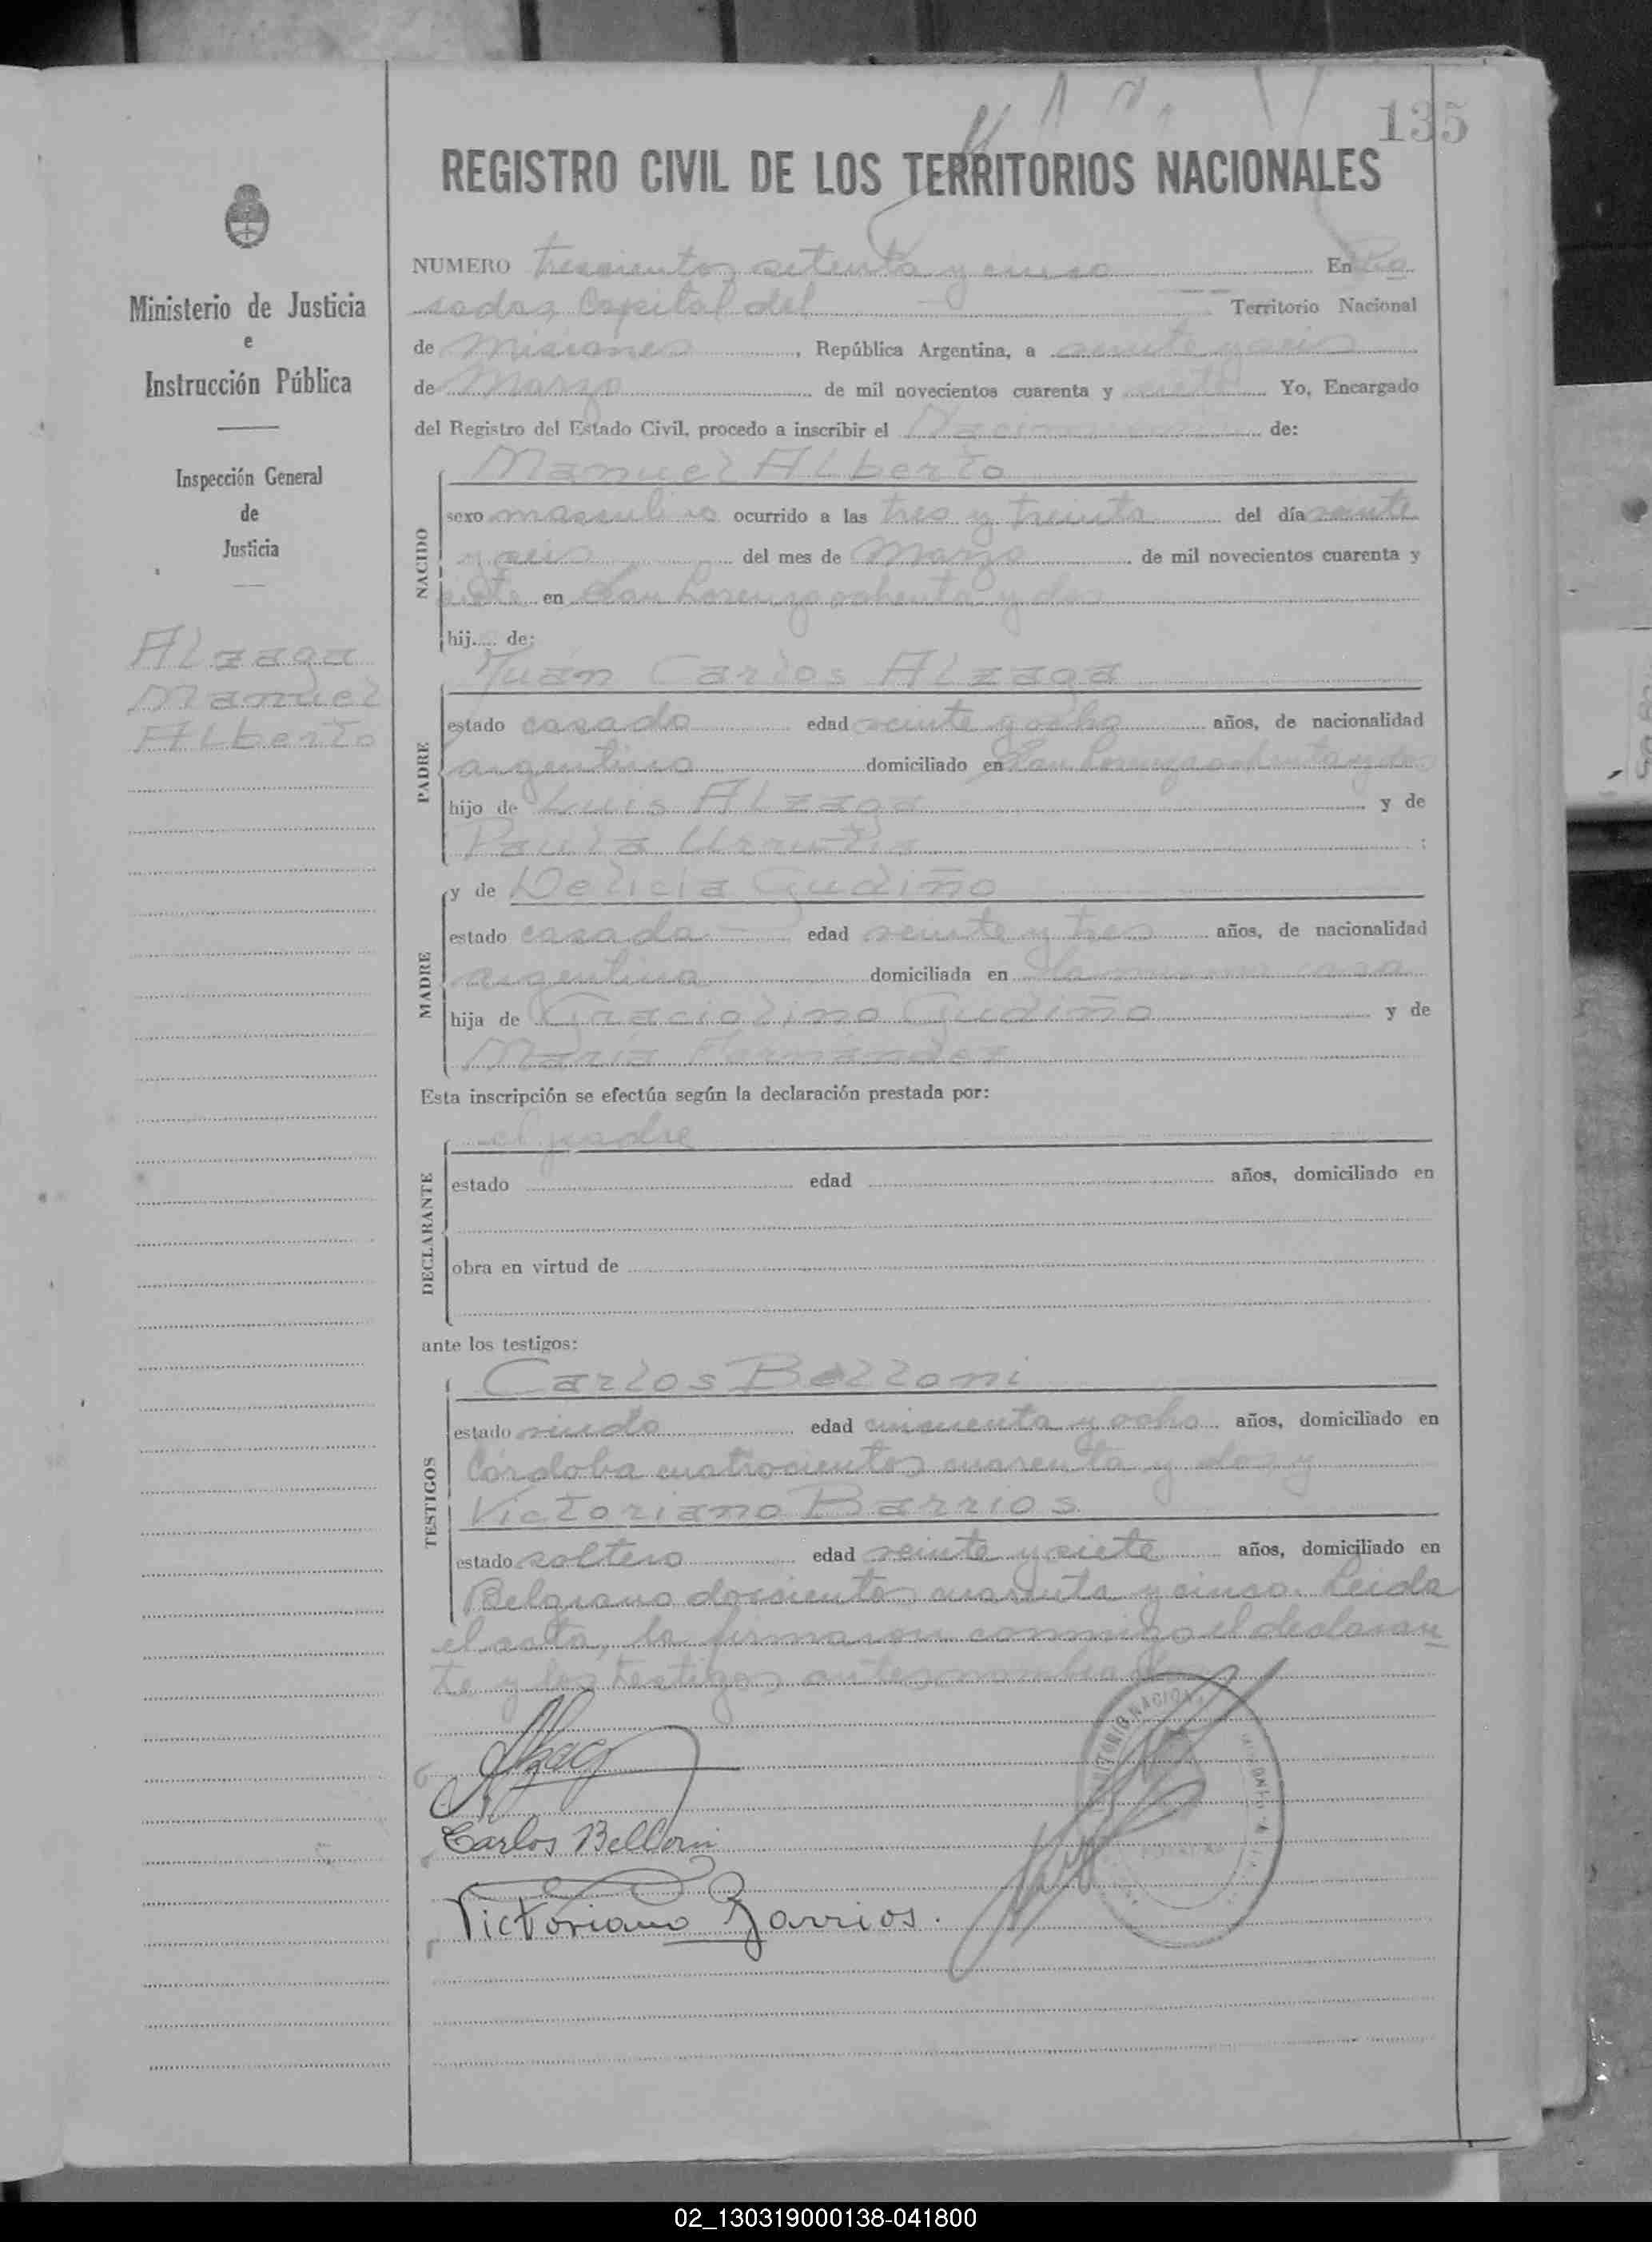 135
REGISTRO CIVIL DE LOS TERRITORIOS NACIONALES
Ministerio de Justicia
e
Instrucción Pública
Inspección General
de
Justicia
Alzaga
Manuel
Alberto
NUMERO trescientos setenta y cinco En Po
sadas, Capital del Territorio Nacional
de Misiones, República Argentina, a veinte y seis
de Marzo de mil novecientos cuarenta y siete Yo, Encargado
del Registro del Estado Civil, procedo a inscribir el Nacimiento de:
Manuel Alberto
NACIDO
sexo masculino ocurrido a las tres y treinta del día veinte
y seis del mes de Marzo de mil novecientos cuarenta y
siete en San Lorenzo ochenta y dos
hij de:
Juan Carlos Alzaga
PADRE
estado casado edad veinte y ocho años, de nacionalidad
argentino domiciliado en San Lorenzo ochenta y dos
hijo de Luis Alzaga y de
Paula Urrutia :
MADRE
y de Delicia Gudiño
estado casada edad veinte y tres años, de nacionalidad
argentina domiciliada en la misma casa
hija de Graciolino Gudiño y de
María Hernández
Esta inscripción se efectúa según la declaración prestada por:
DECLARANTE
el padre
estado edad años, domiciliado en
obra en virtud de
ante los testigos:
TESTIGOS
Carlos Belloni
estado viudo edad cincuenta y ocho años, domiciliado en
Córdoba cuatrocientos cuarenta y dos y
Victoriano Barrios
estado soltero edad veinte y siete años, domiciliado en
Belgrano doscientos cuarenta y cinco. Leida
el acta, la firmaron conmigo el declaran
te y los testigos antes nombrados
Alzaga
Carlos Belloni
Victoriano Barrios.
02_130319000138-041800